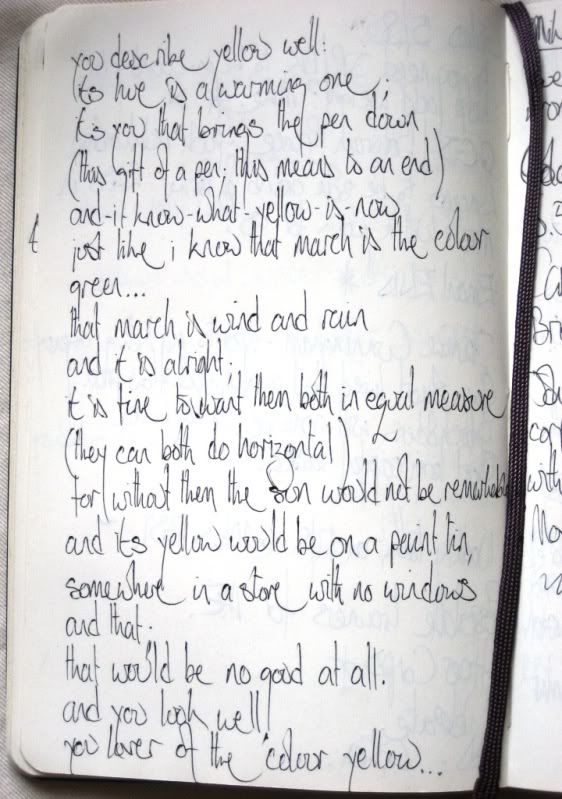 you describe yellow well:
its hue is a warming one;
it's you that brings the pen down
(this gift of a pen; this means to an end)
and-i-know-what-yellow-is-now
just like i know that march is the colour
green...
that march is wind and rain
and it is alright;
it is fine to want them both in equal measure
(they can both do horizontal)
for without them the sun would not be remarkable
and its yellow would be on a paint tin,
somewhere in a store with no windows
and that.
that would be no good at all.
and you look well!
you lover of the colour yellow...